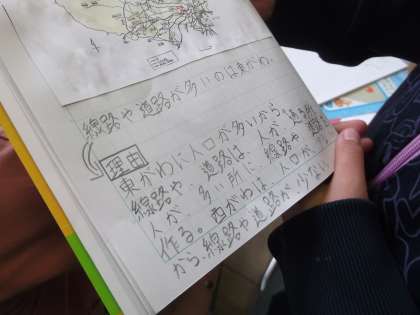 線路や道路が多いのは東がわ。
理由
東がわに人口が多いから。
線路や、道路は、人が
人が、多い所に、線路や
作る。西がわは、人口が
から、線路や道路が少ない